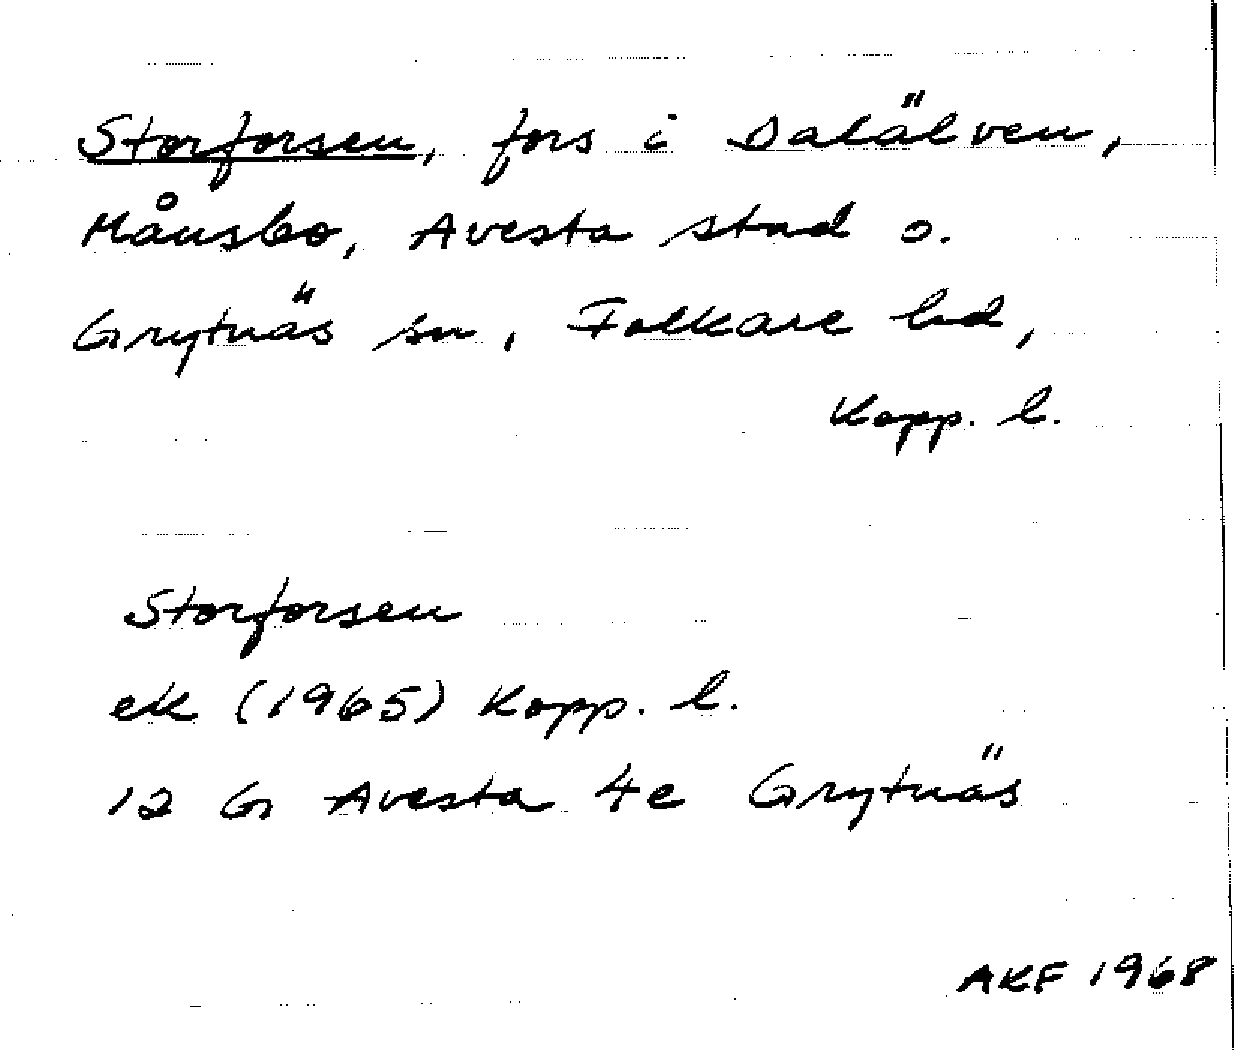 Storforsen, fors i Dalälven,
Månsbo, Avesta stad o.
Grytnäs sn, Folkare hd,
Kopp. l.
Storforsen
ek (1965) Kopp. l.
12 G Avesta 4e Grytnäs
AKF 1968